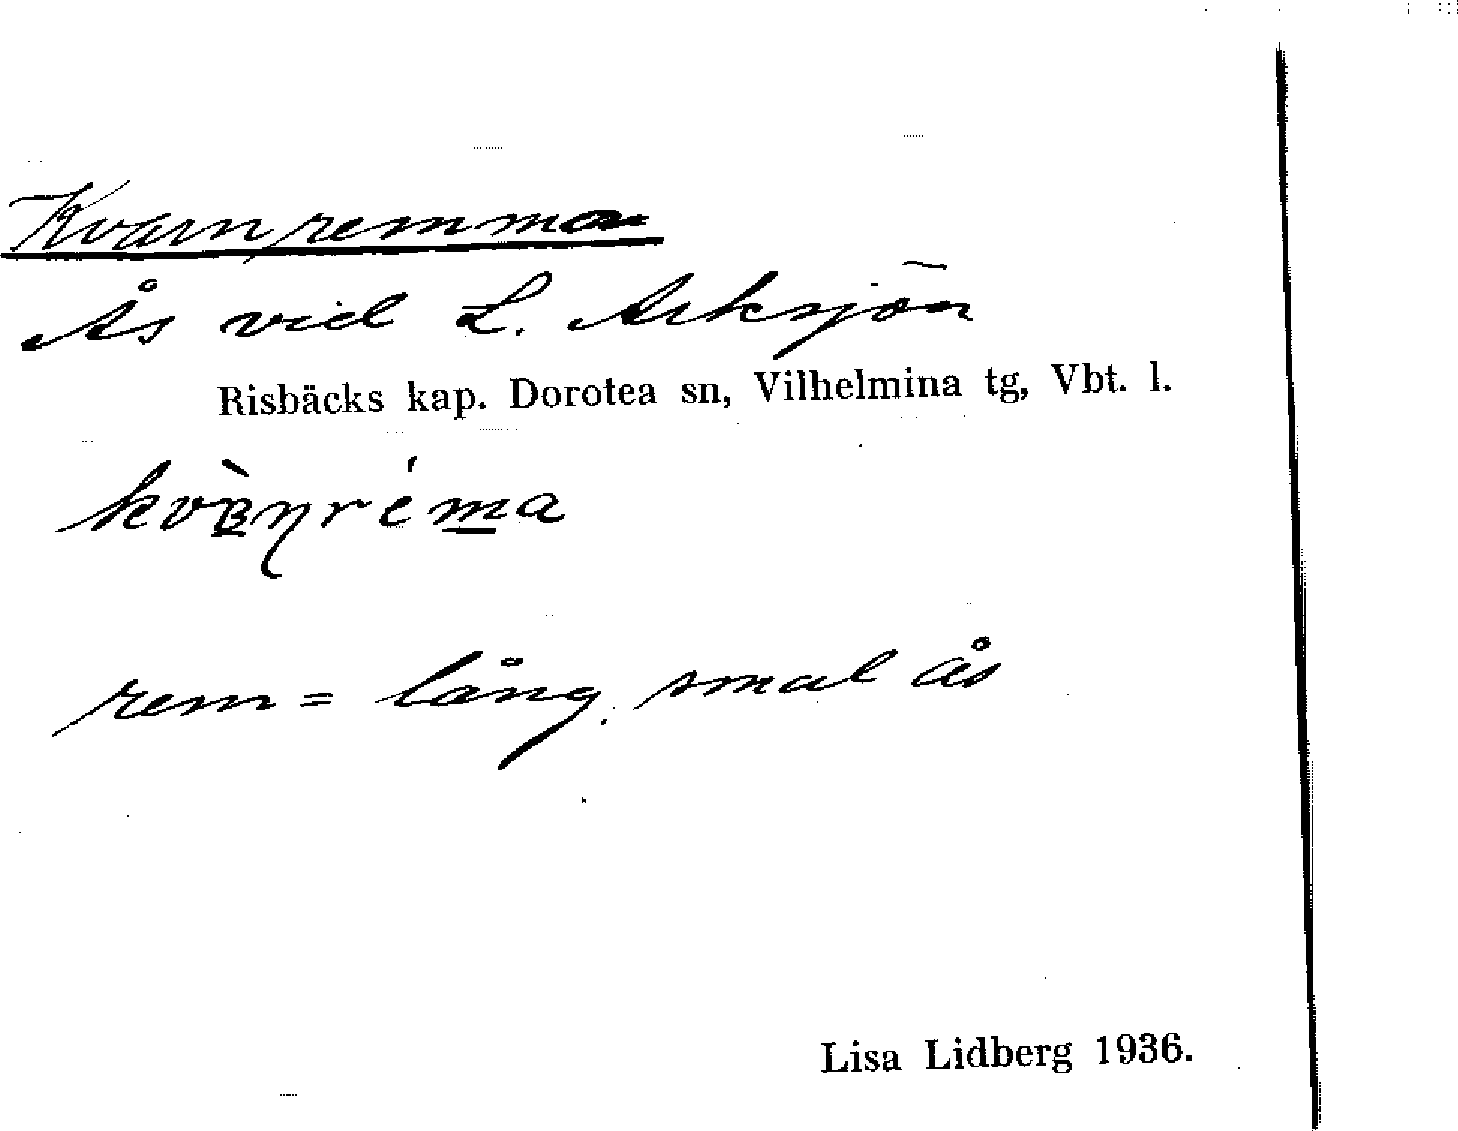 Kvarnremma
Ås vid L. Arksjön
Risbäcks kap. Dorotea sn, Vilhelmina tg, Vbt. l.
rem = lång, smal ås
Lisa Lidberg 1936.